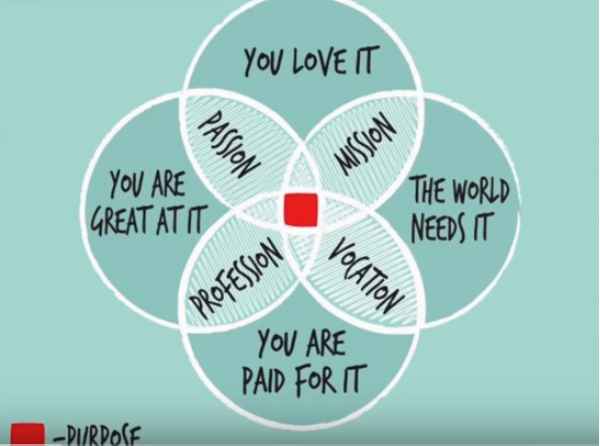 YOU LOVE IT
PASSION
MISSION
YOU ARE
GREAT AT IT
THE WORLD
NEEDS IT
PROFESSION
VOCATION
YOU ARE
PAID FOR IT
-PURPOSE